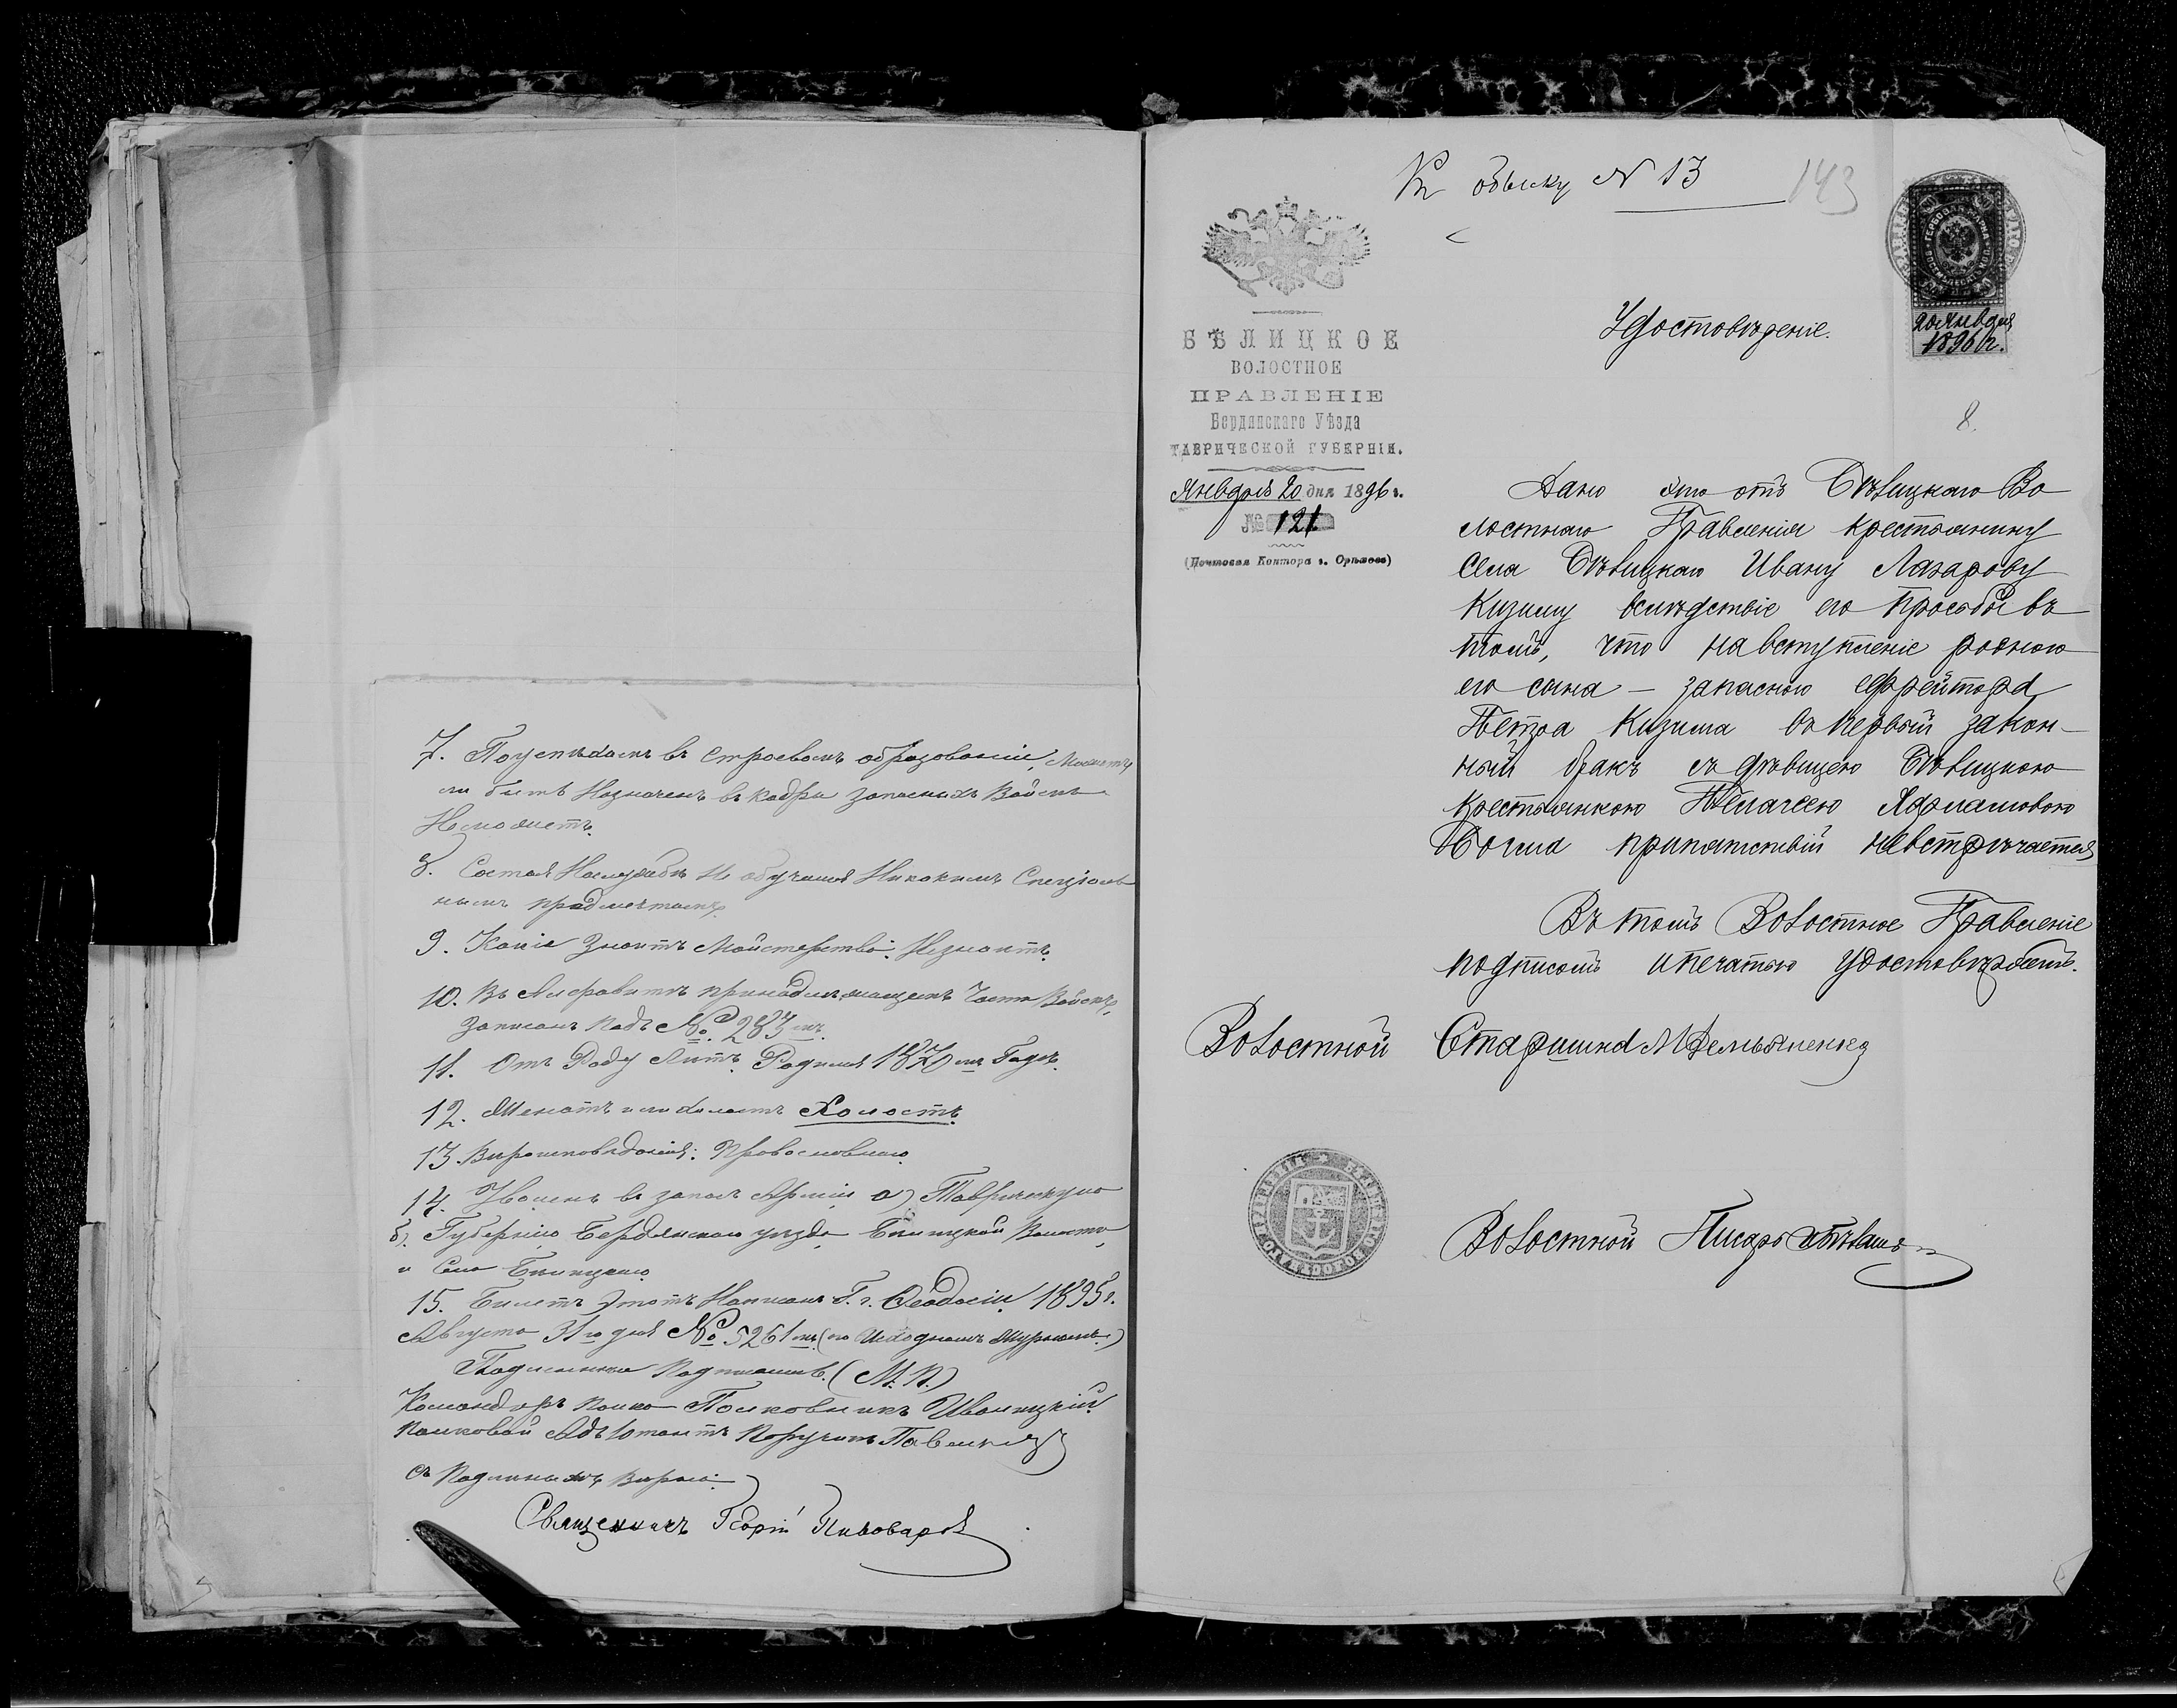 7. Поуспѣхамъ въ строевомъ образованіи, Можетъ
ли быть Назначенъ въ кадры запасныхъ Войскъ
Неможетъ.
8. Состоя Наслужбѣ Не обучался Никакимъ Спеціаль
нымъ предметамъ.
9. Какія Знаитъ Мастерства: Незнаитъ.
10. Въ Алфавитѣ принадлежащемъ Части Войскъ,
Записанъ Подъ №. 283 мъ.
11. Отъ Роду Лѣтъ. Родился 1870 мъ Годѣ.
12. Женатъ или Холостъ Холостъ.
13. Вѣроисповѣданія: Православнаго.
14. Уволенъ въ запасъ Арміи а) Таврическую
б). Губернію Бердянскаго уѣзда Бѣлицкой Волости
и Села Бѣлицкаго
15. Билетъ Этотъ Написанъ Г. г. Ѳеодосіи 1895 г.
Августа 31 го дня №. 5261 мъ (по Исходящемъ Журналѣ.)
Подлинный Подписали. (М. П.)
Командиръ полка Полковникъ Иваницкій
Полковой Адъютантъ Поручикъ
съ Подлиннымъ Вѣрно:
Священникъ Георгій Пивоваровъ
Къ обыску № 13
143
20 Января
1896 г.
8.
БѢЛИЦКОЕ
ВОЛОСТНОЕ
ПРАВЛЕНІЕ
Бердянскаго Уѣзда
ТАВРИЧЕСКОЙ ГУБЕРНІИ.
Января 20 дня 1896 г.
№ 121
(Почтовая Контора г. Орѣховъ)
Удостовѣреніе.
Дано это отъ Бѣлицкаго Во
лостнаго Правленія крестьянину
села Бѣлицкаго Ивану Лазарову
Кизиму вслѣдствіе его просьбы въ
томъ, что на вступленіе роднаго
его сына – запаснаго ефрейтора
Петра Кизима въ первый закон-
ный бракъ съ дѣвицею Бѣлицкою
крестьянкою Пелагеею
препятствій невстрѣчается
Въ томъ Волостное Правленіе
подписомъ и печатью удостовѣряетъ.
Волостной Старшина МЕмельяненко
Волостной Писарь